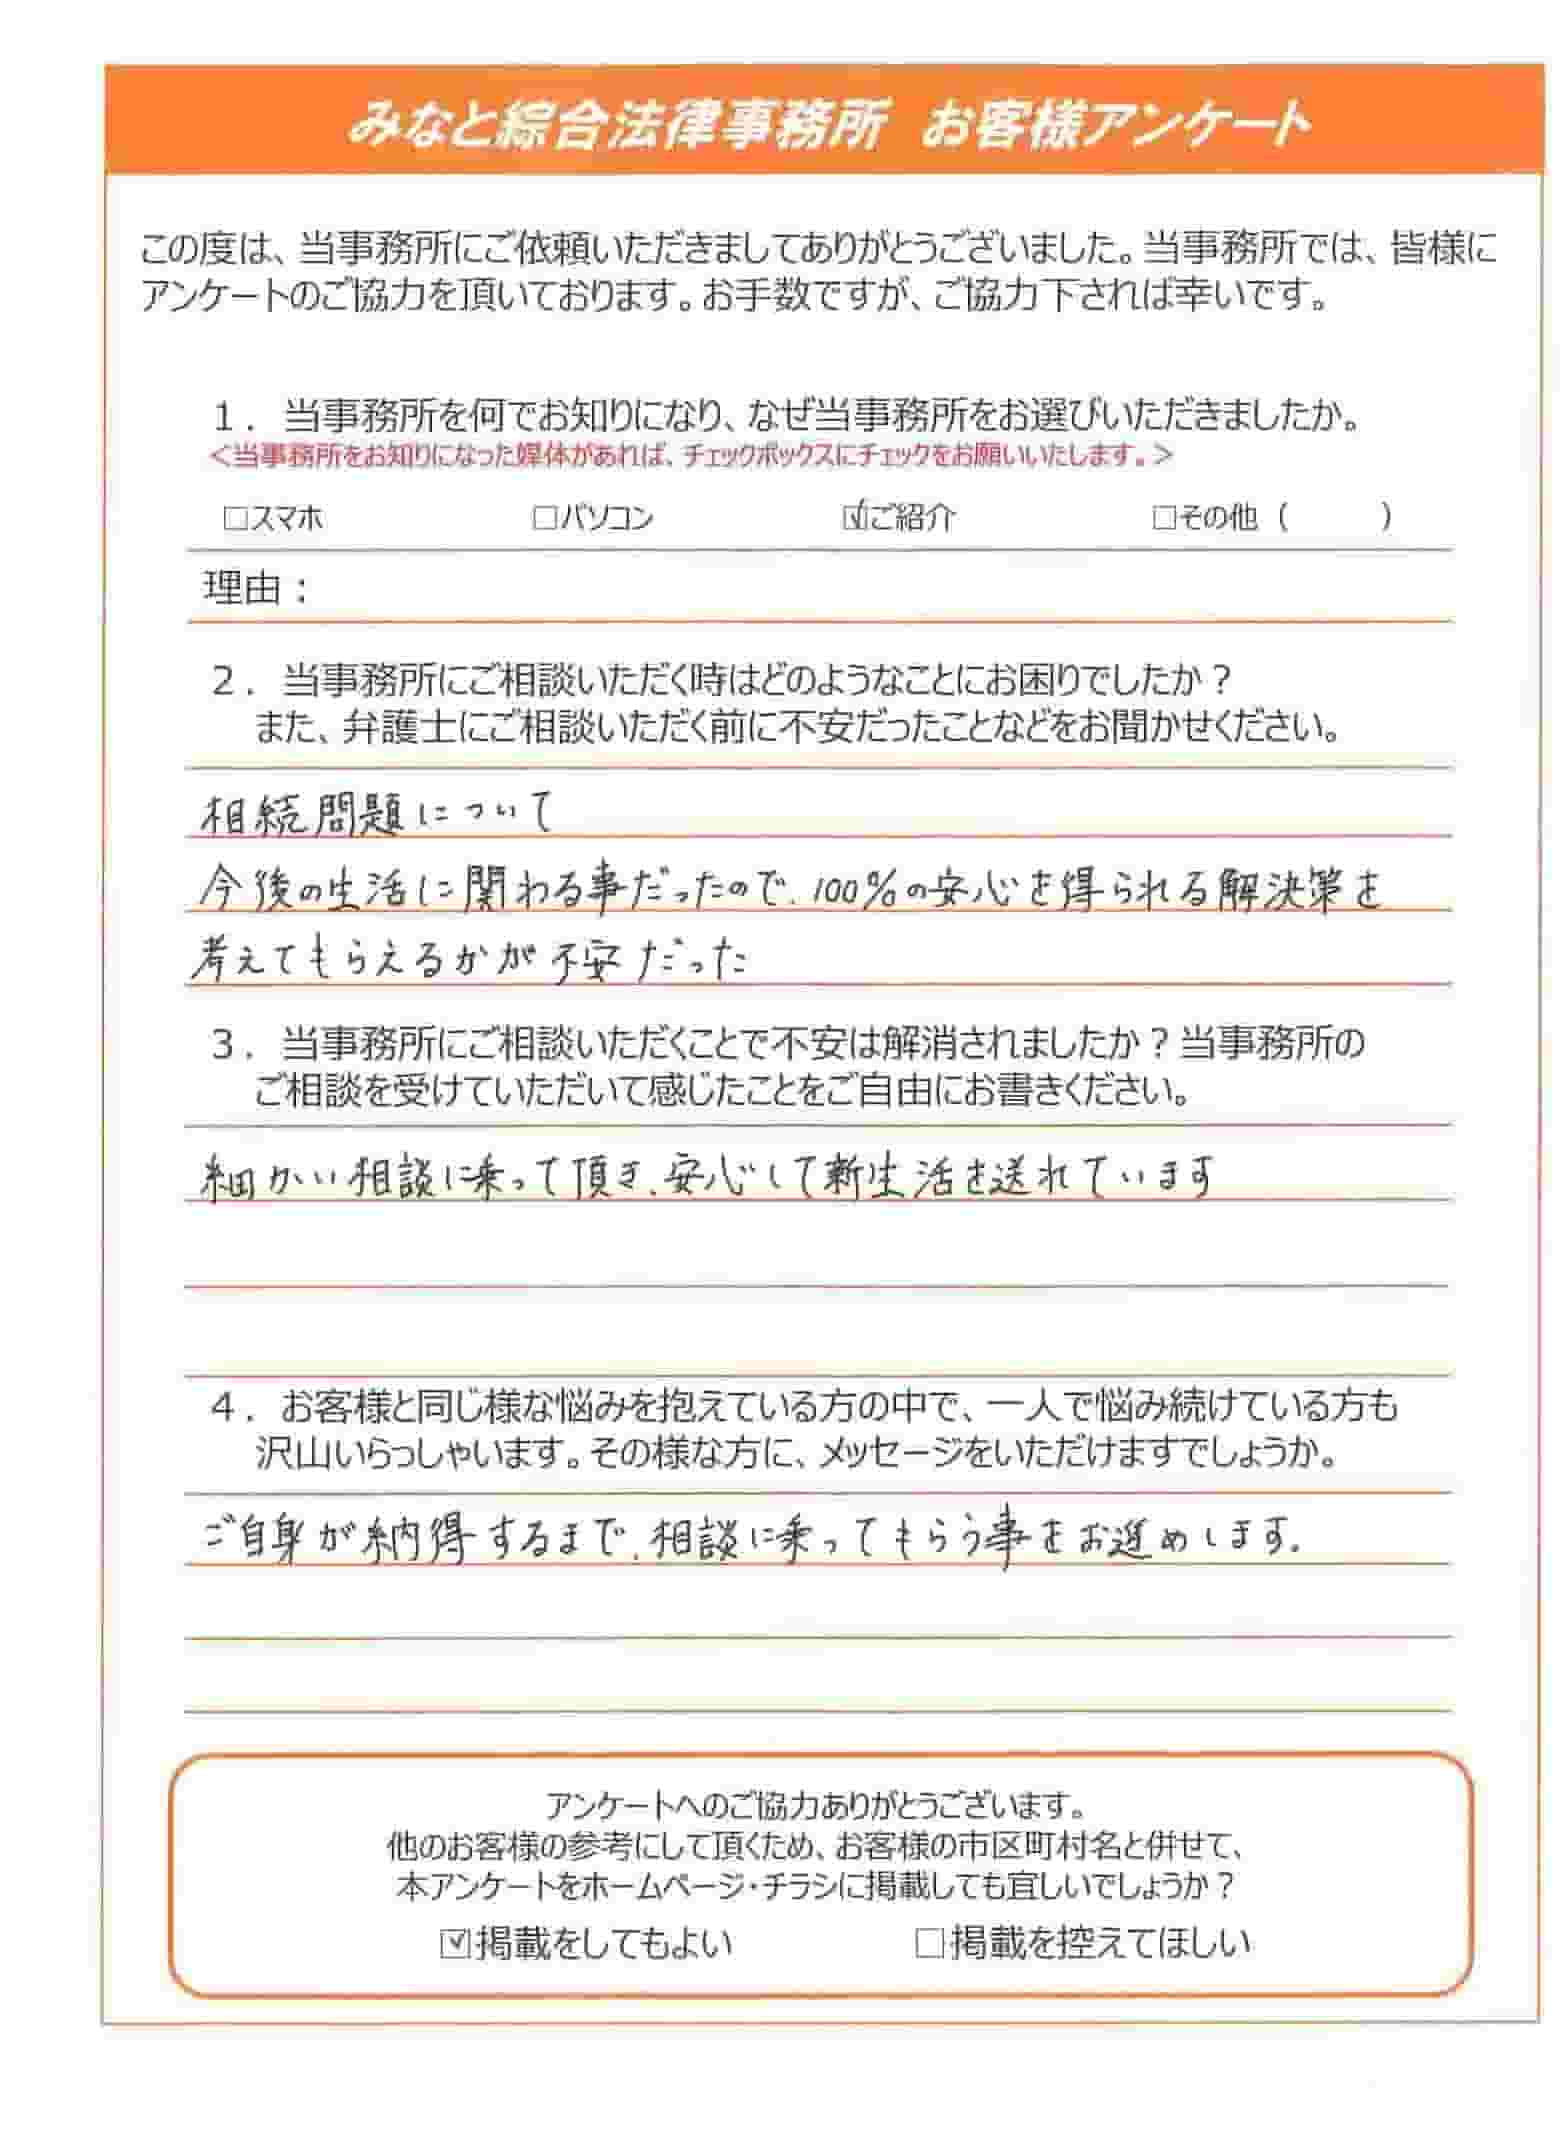 みなと綜合法律事務所　お客様アンケート
この度は、当事務所にご依頼いただきましてありがとうございました。当事務所では、皆様に
アンケートのご協力を頂いております。お手数ですが、ご協力下されば幸いです。
１．当事務所を何でお知りになり、なぜ当事務所をお選びいただきましたか。
＜当事務所をお知りになった媒体があれば、チェックボックスにチェックをお願いいたします。＞
□スマホ　□パソコン　☑ご紹介　□その他（　　）
理由：
２．当事務所にご相談いただく時はどのようなことにお困りでしたか？
また、弁護士にご相談いただく前に不安だったことなどをお聞かせください。
相続問題について
今後の生活に関わる事だったので、100％の安心を得られる解決策を
考えてもらえるかが不安だった
３．当事務所にご相談いただくことで不安は解消されましたか？当事務所の
ご相談を受けていただいて感じたことをご自由にお書きください。
細かい相談に乗って頂き、安心して新生活を送れています
４．お客様と同じ様な悩みを抱えている方の中で、一人で悩み続けている方も
沢山いらっしゃいます。その様な方に、メッセージをいただけますでしょうか。
ご自身が納得するまで、相談に乗ってもらう事をお進めします。
アンケートへのご協力ありがとうございます。
他のお客様の参考にして頂くため、お客様の市区町村名と併せて、
本アンケートをホームページ・チラシに掲載しても宜しいでしょうか？
☑掲載をしてもよい　□掲載を控えてほしい